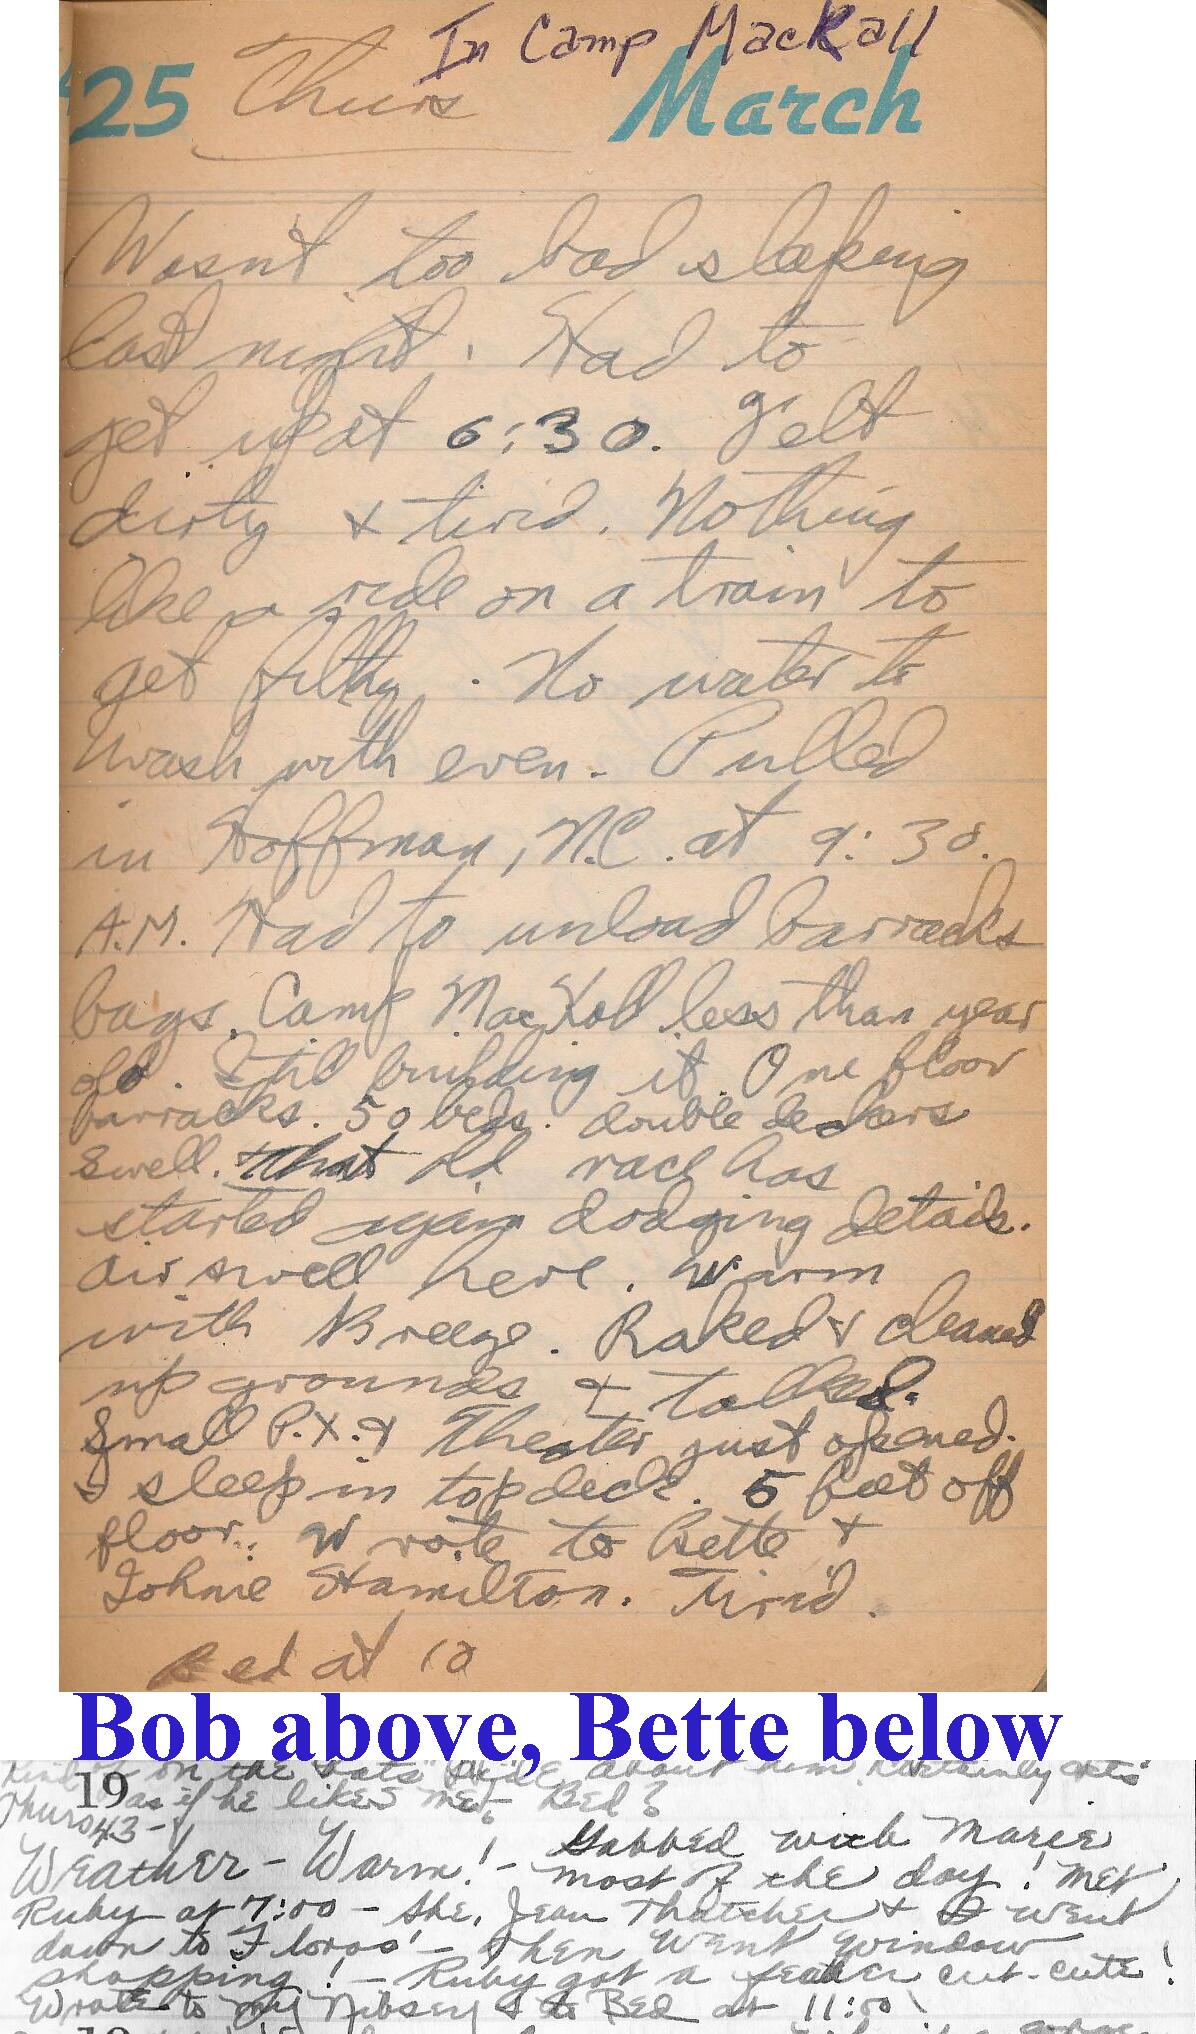 In Camp MacKall
25 Thurs March
Wasnt too bad sleeping
last night. Had to
get up at 6:30. Felt
dirty & tired. Nothing
like a ride on a train to
get filthy. No water to
wash with even. Pulled
in Hoffman, N.C. at 9:30.
A.M. Had to unload barracks
bags. Camp MacKall less than year
old. Still building it. One floor
barracks. 50 beds. double deckers
swell. that old race has
started again dodging details.
Air swell here. Warm
with Breeze. Raked & cleaned
up grounds & talked.
Small P.X. & Theater just opened.
I sleep in top deck. 5 feet off
floor. Wrote to Bette &
Johnie Hamilton. Tired.
Bed at 10
Bob above, Bette below
on the about him certainly acts
19 as if he likes me. Bed?
Thurs 43 -
Gabbed with Marie
Weather - Warm! - most of the day! Met
Ruby at 7:00 - She, Jean Thatcher & I went
down to Floros' - Then went window
shopping! - Ruby got a feather cut - cute!
Wrote to my Nibsey & to Bed at 11:00
19